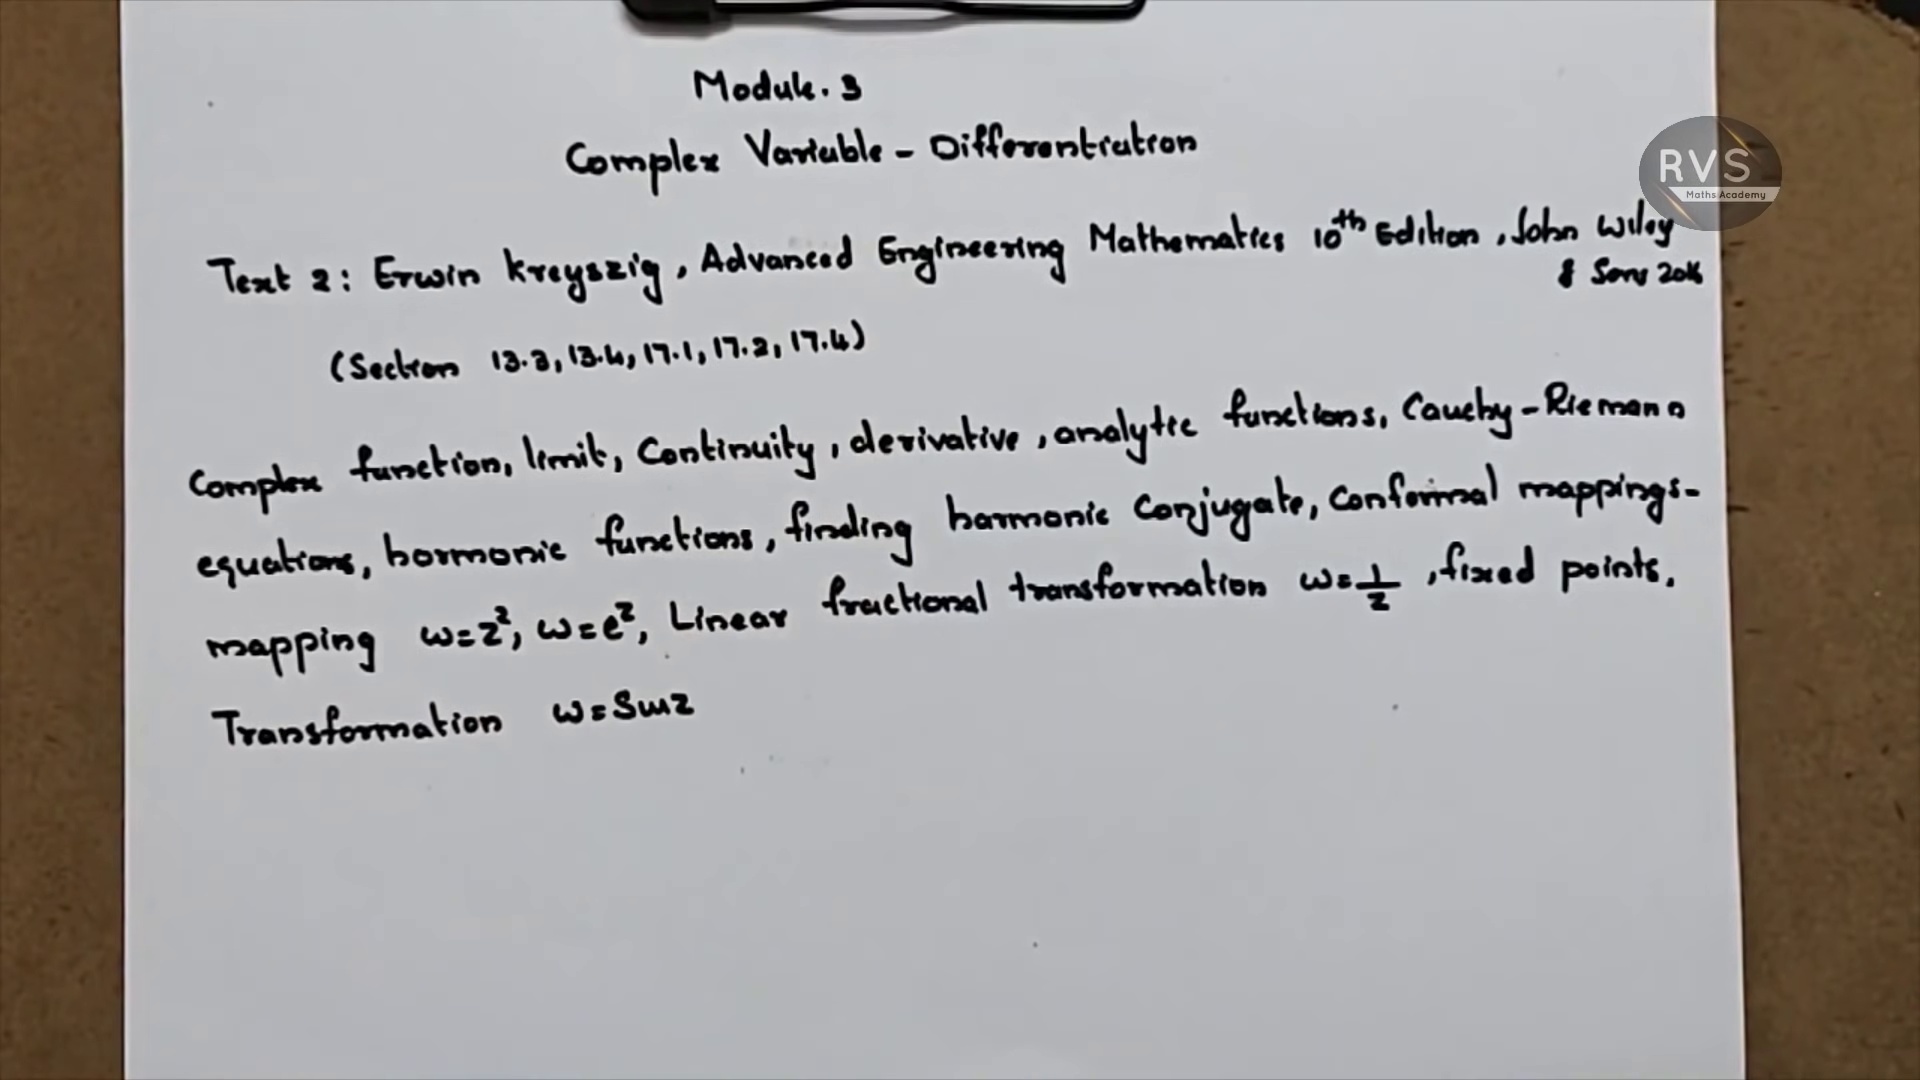 Module. 3
Complex Variable - Differentiation
RVS
Maths Academy
Text 2: Erwin Kreyszig, Advanced Engineering Mathematics 10th Edition, John Wiley
& Sons 2016
(Section 13.3, 13.4, 17.1, 17.2, 17.4)
Complex function, limit, Continuity, derivative, analytic functions, Cauchy-Riemann
equations, harmonic functions, finding harmonic Conjugate, Conformal mappings-
mapping w=z², w=e^z, Linear fractional transformation w=1/z, fixed points.
Transformation w=Sinz